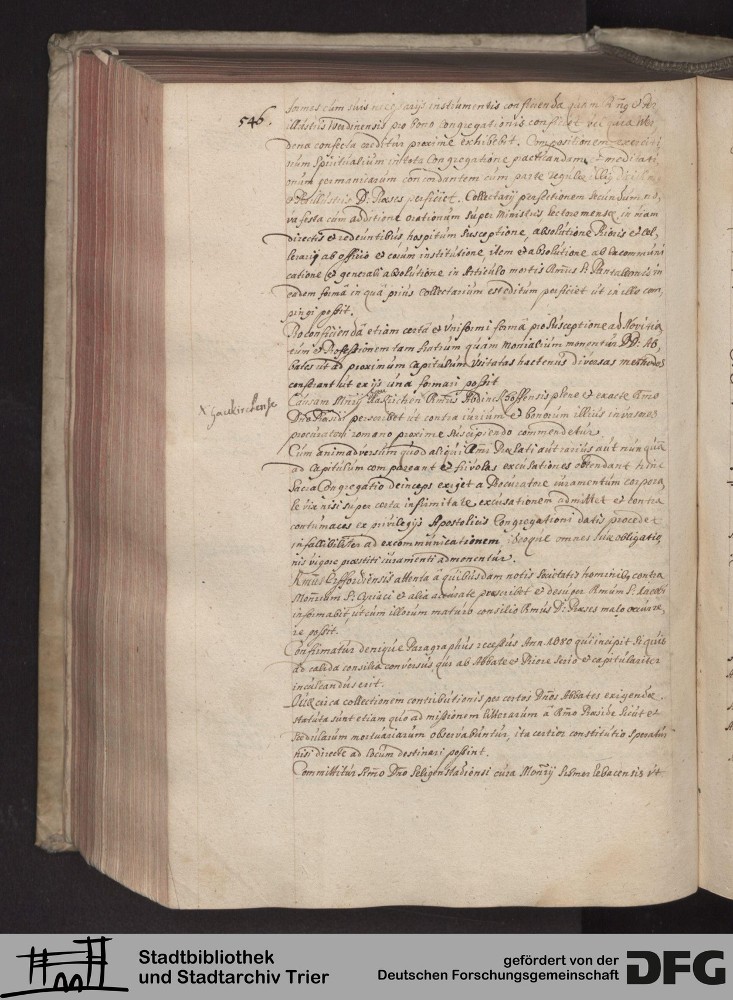 546.
suis necessarijs instrumentis conficienda quam
illustris Werdinensis pro bono Congregationis
dena confecta creditur proxime exhibebit. Compositionem exerciti
orum Spiritualium in tota Congregatione practicandam et meditati
onum germanicarum concordantem cum parte regulae
D: Praeses perficiet. Collectarij perfectionem secundum no,
va festa cum additione orationum super Ministris lectore mensae, in viam
directis et redeuntibus hospitum susceptione, absolutione Prioris et Cel,
lerarij ab officio et eorum institutione, item et absolutione ab excommuni
catione et generali absolutione in Articulo mortis Rmus S: Pantaleonis in
eadem formâ in quâ prius Collectarium est editum perficiet ut in illo com,
pingi possit.
Pro conficiendâ etiam certâ et Uniformi formâ pro Susceptione ad Novitia,
tum et Professionem tam fratrum quàm Monialium monentur DD: Ab,
bates ut ad proximum Capitulum Usitatas hactenus diversas methodos
conferant ut ex ijs una formari possit
X Gaukirchense
Causam Mnrij Rmus plene et exacte Rmo
Dno Praesidi perscribet ut contra iurium et bonorum illius invasores
procuratori romano proxime suscipiendo commendetur.
Cum animadversum quod aliqui Rmi Praelati aut rarius aut nunquam
ad Capitulum compareant et frivolas excusationes obtendant hinc
Sacra Congregatio deinceps exiget a Procuratore iuramentum corpora,
le vix nisi super certa infirmitate excusationem admittet et contra
contumaces ex privilegijs Apostolicis Congregationi datis procedet
infallibiliter ad excommunicationem ideoque omnes suae obligatio,
nis vigore praestiti iuramenti admonentur.
Rmus Erffordiensis attenta â quibusdam notis Societatis hominibus contra
Monrium S: Cyriaci et alia accurate perscribet et desuper Rmum S: Jacobi
informabit, ut cum illorum maturo consilio Rmus D: Praeses malo occurre,
re possit.
Confirmatur denique Paragraphus recessus Ann. 1580 qui incipit Si quis
ad calida consilia conversus, qui ab Abbate et Priore serio et capitulariter
inculcandus erit.
Quae circa collectionem contributionis per certos Dnos Abbates exigendae
statuta sunt etiam quo ad missionem litterarum â Rmo Praeside sicut et
Schedularum mortuariarum observabuntur, ita certior constitutio speratur
nisi directe ad locum destinari possint.
Committitur Rmo Dno Seligenstadiensi cura Monrij ut
Stadtbibliothek
und Stadtarchiv Trier
gefördert von der
Deutschen Forschungsgemeinschaft
DFG